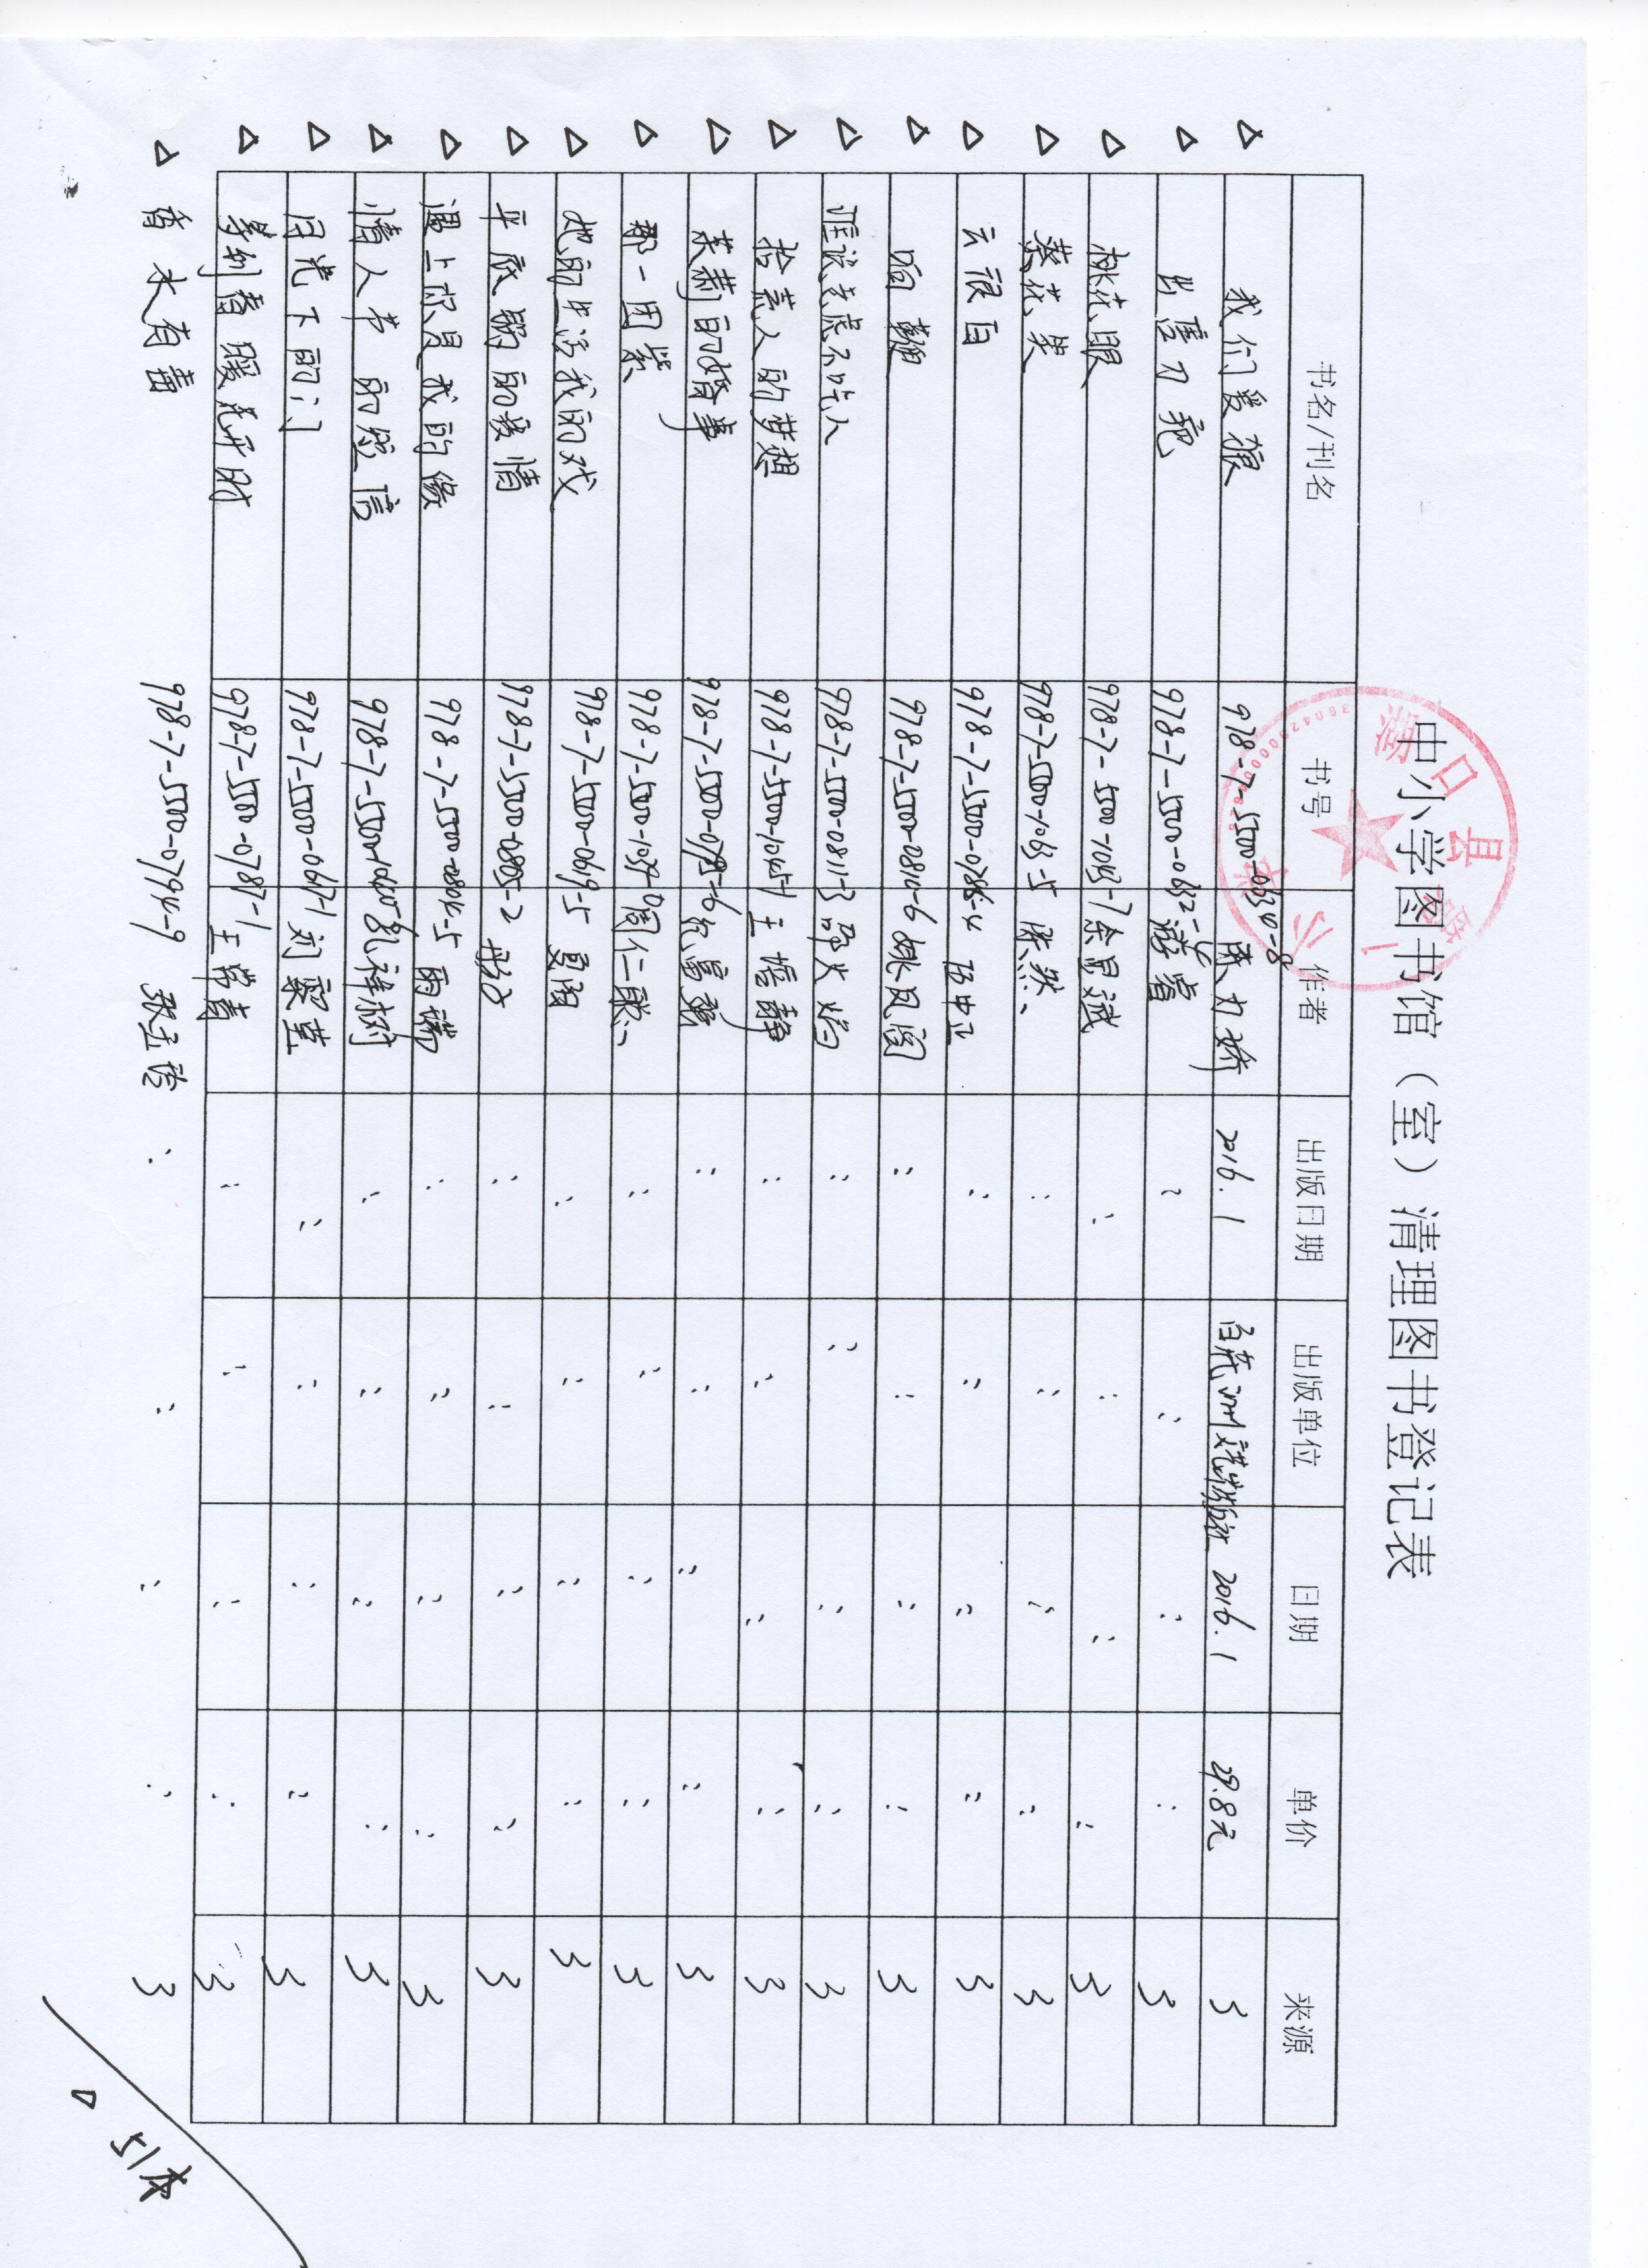 中小学图书馆（室）清理图书登记表
书名/刊名 书号 作者 出版日期 出版单位 日期 单价 来源
△ 我们爱狼 978-7-5500-0330-8 陈力娇 2016.1 百花洲文艺出版社 2016.1 29.8元 3
△ 出售刀疤 978-7-5500-0632-4 游睿 〃 〃 〃 〃 3
△ 桃花眼 978-7-5500-1043-7 余显斌 〃 〃 〃 〃 3
△ 葵花 978-7-5500-1063-5 陈然 〃 〃 〃 〃 3
△ 云很白 978-7-5500-0786-4 伍中正 〃 〃 〃 〃 3
△ 响鞭 978-7-5500-0810-6 姚凤阁 〃 〃 〃 〃 3
△ 谁说老虎不吃人 978-7-5500-0811-3 邵火焰 〃 〃 〃 〃 3
△ 拾荒人的梦想 978-7-5500-1045-1 王培静 〃 〃 〃 〃 3
△ 的婚事 978-7-5500-0795-6 〃 〃 〃 〃 3
△ 那一团紫 978-7-5500-1039- 周仁聪 〃 〃 〃 〃 3
△ 她的生活我的戏 978-7-5500-0619-5 夏阳 〃 〃 〃 〃 3
△ 平底锅的爱情 978-7-5500-0805-2 〃 〃 〃 〃 3
△ 遇上你是我的缘 978-7-5500-0804-5 雨瑞 〃 〃 〃 〃 3
△ 情人节的短信 978-7-5500-1040- 乳祥树 〃 〃 〃 〃 3
△ 月光下的门 978-7-5500-0617-1 刘 〃 〃 〃 〃 3
△ 等到春暖花开时 978-7-5500-0787-1 王常青 〃 〃 〃 〃 3
△ 香水有毒 978-7-5500-0794-9 〃 〃 〃 〃 3
△ 51本